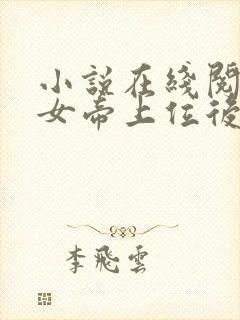 小說在綫閱
女帝上位後
李飛雲